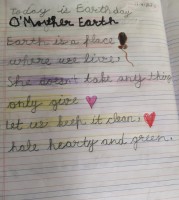 Today is Earthday
O'Mother Earth
Earth is a place
where we live.
She doesn't take any thing
only give
Let us keep it clean,
hale hearty and green.